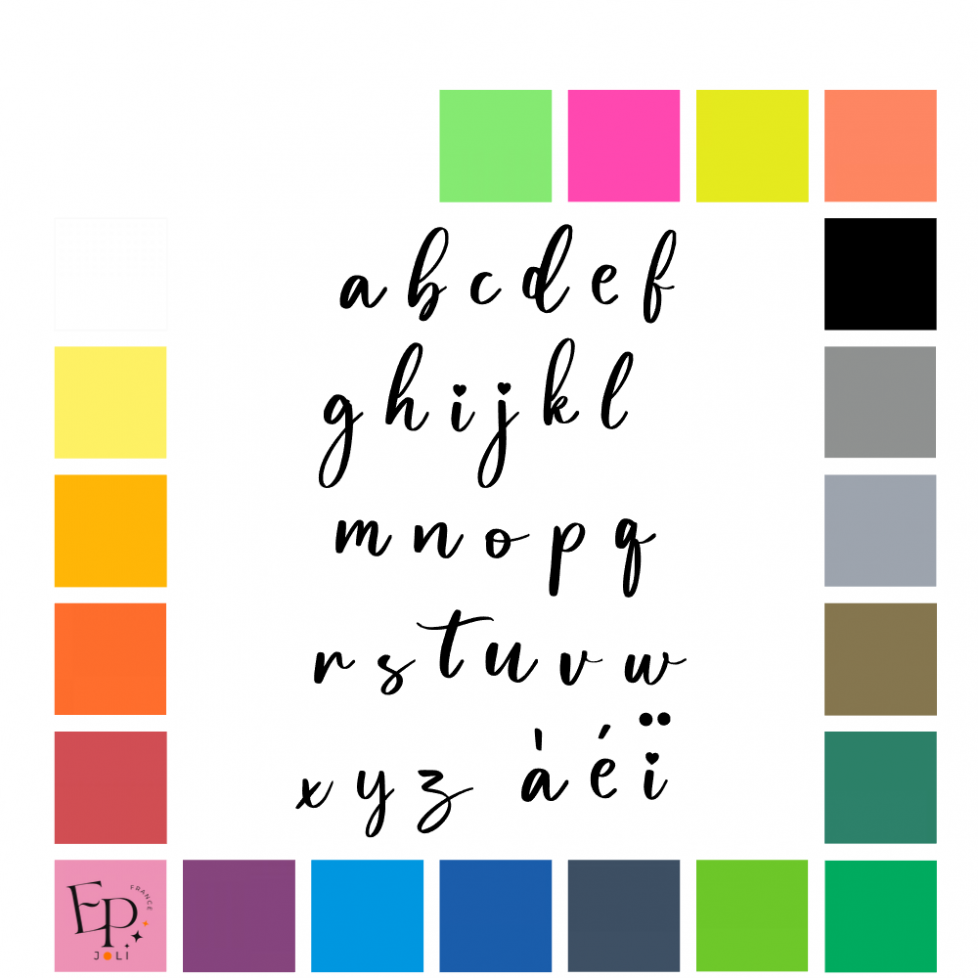 a b c d e f
g h i j k l
m n o p q
r s t u v w
x y z à é ï
EP
FRANCE
JOLI